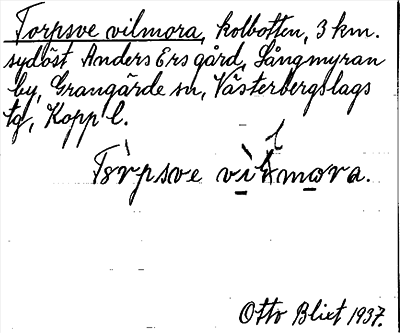 Torpsve vilmora, kolbotten, 3 km.
sydöst Anders Ers gård, Sångmyran
by, Grangärde sn, Västerbergslags
tg, Kopp l.
Tòrpsve vìlmora.
Otto Blixt 1937.